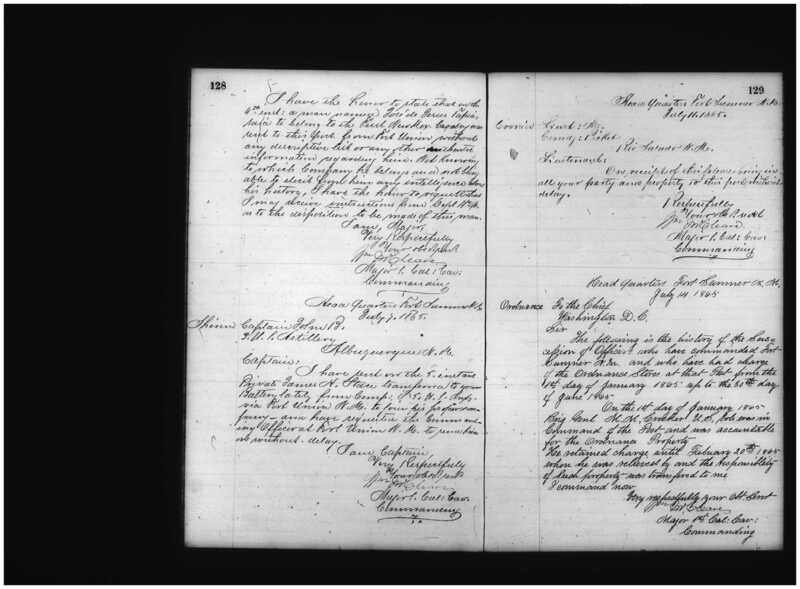 128
I have the honor to state that on the
6th inst: a man named José de Jesus Tapia,
said to belong to the First New Mex: Cavalry was
sent to this Post from Fort Union without
any descriptive list or any other authentic
information regarding him. Not knowing
to which Company he belongs and not being
able to elicit from him any intelligence
his history, I have the honor to request that
I may receive instructions from
as to the disposition to be made of this man.
I am, Major,
Very Respectfully
Your obt Servt
Wm McCleave
Major 1. Cal: Cav:
Commanding
Head Quarters Fort Sumner N. M.
July 7. 1865.
Shinn
Captain John B.
3. U. S. Artillery
Albuquerque N. M.
Captain:
I have sent on the instant
Private James A. transferred to your
Battery lately from Comp: 5. U. S. Infy
via Fort Union N. M. to
and have requested the Command-
ing Officer at Fort Union N. M. to
without delay.
I am Captain
Very Respectfully
Your obt Servt
Wm McCleave
Major 1. Cal: Cav:
Commanding
129
Head Quarters Fort Sumner N. M.
July 11. 1865.
Comdg:
Rio N. M.
Lieutenant:
On receipt of this please bring in
all your party and property to this post without
delay.
Respectfully
Your obt Servt
Wm McCleave
Major 1. Cal: Cav:
Commanding
Head Quarters Fort Sumner N. M.
July 14 1865
Ordnance
To the Chief
Washington D. C.
Sir
The following is the history of the Suc-
cession of Officers who have commanded Fort
Sumner N. M. and who have had charge
of the Ordnance Stores at that Post from the
1st day of January 1865 up to the 30th day
of June 1865
On the 1st day of January 1865
Brig Genl M. M. Crocker U. S. Vols was in
Command of the Post and was accountable
for the Ordnance Property
He retained charge until February 28th 1865
when he was relieved by and the responsibility
of such property was transfered to me
I command now
Very respectfully your Obt Servt
Wm McCleave
Major 1st Cal: Cav:
Commanding